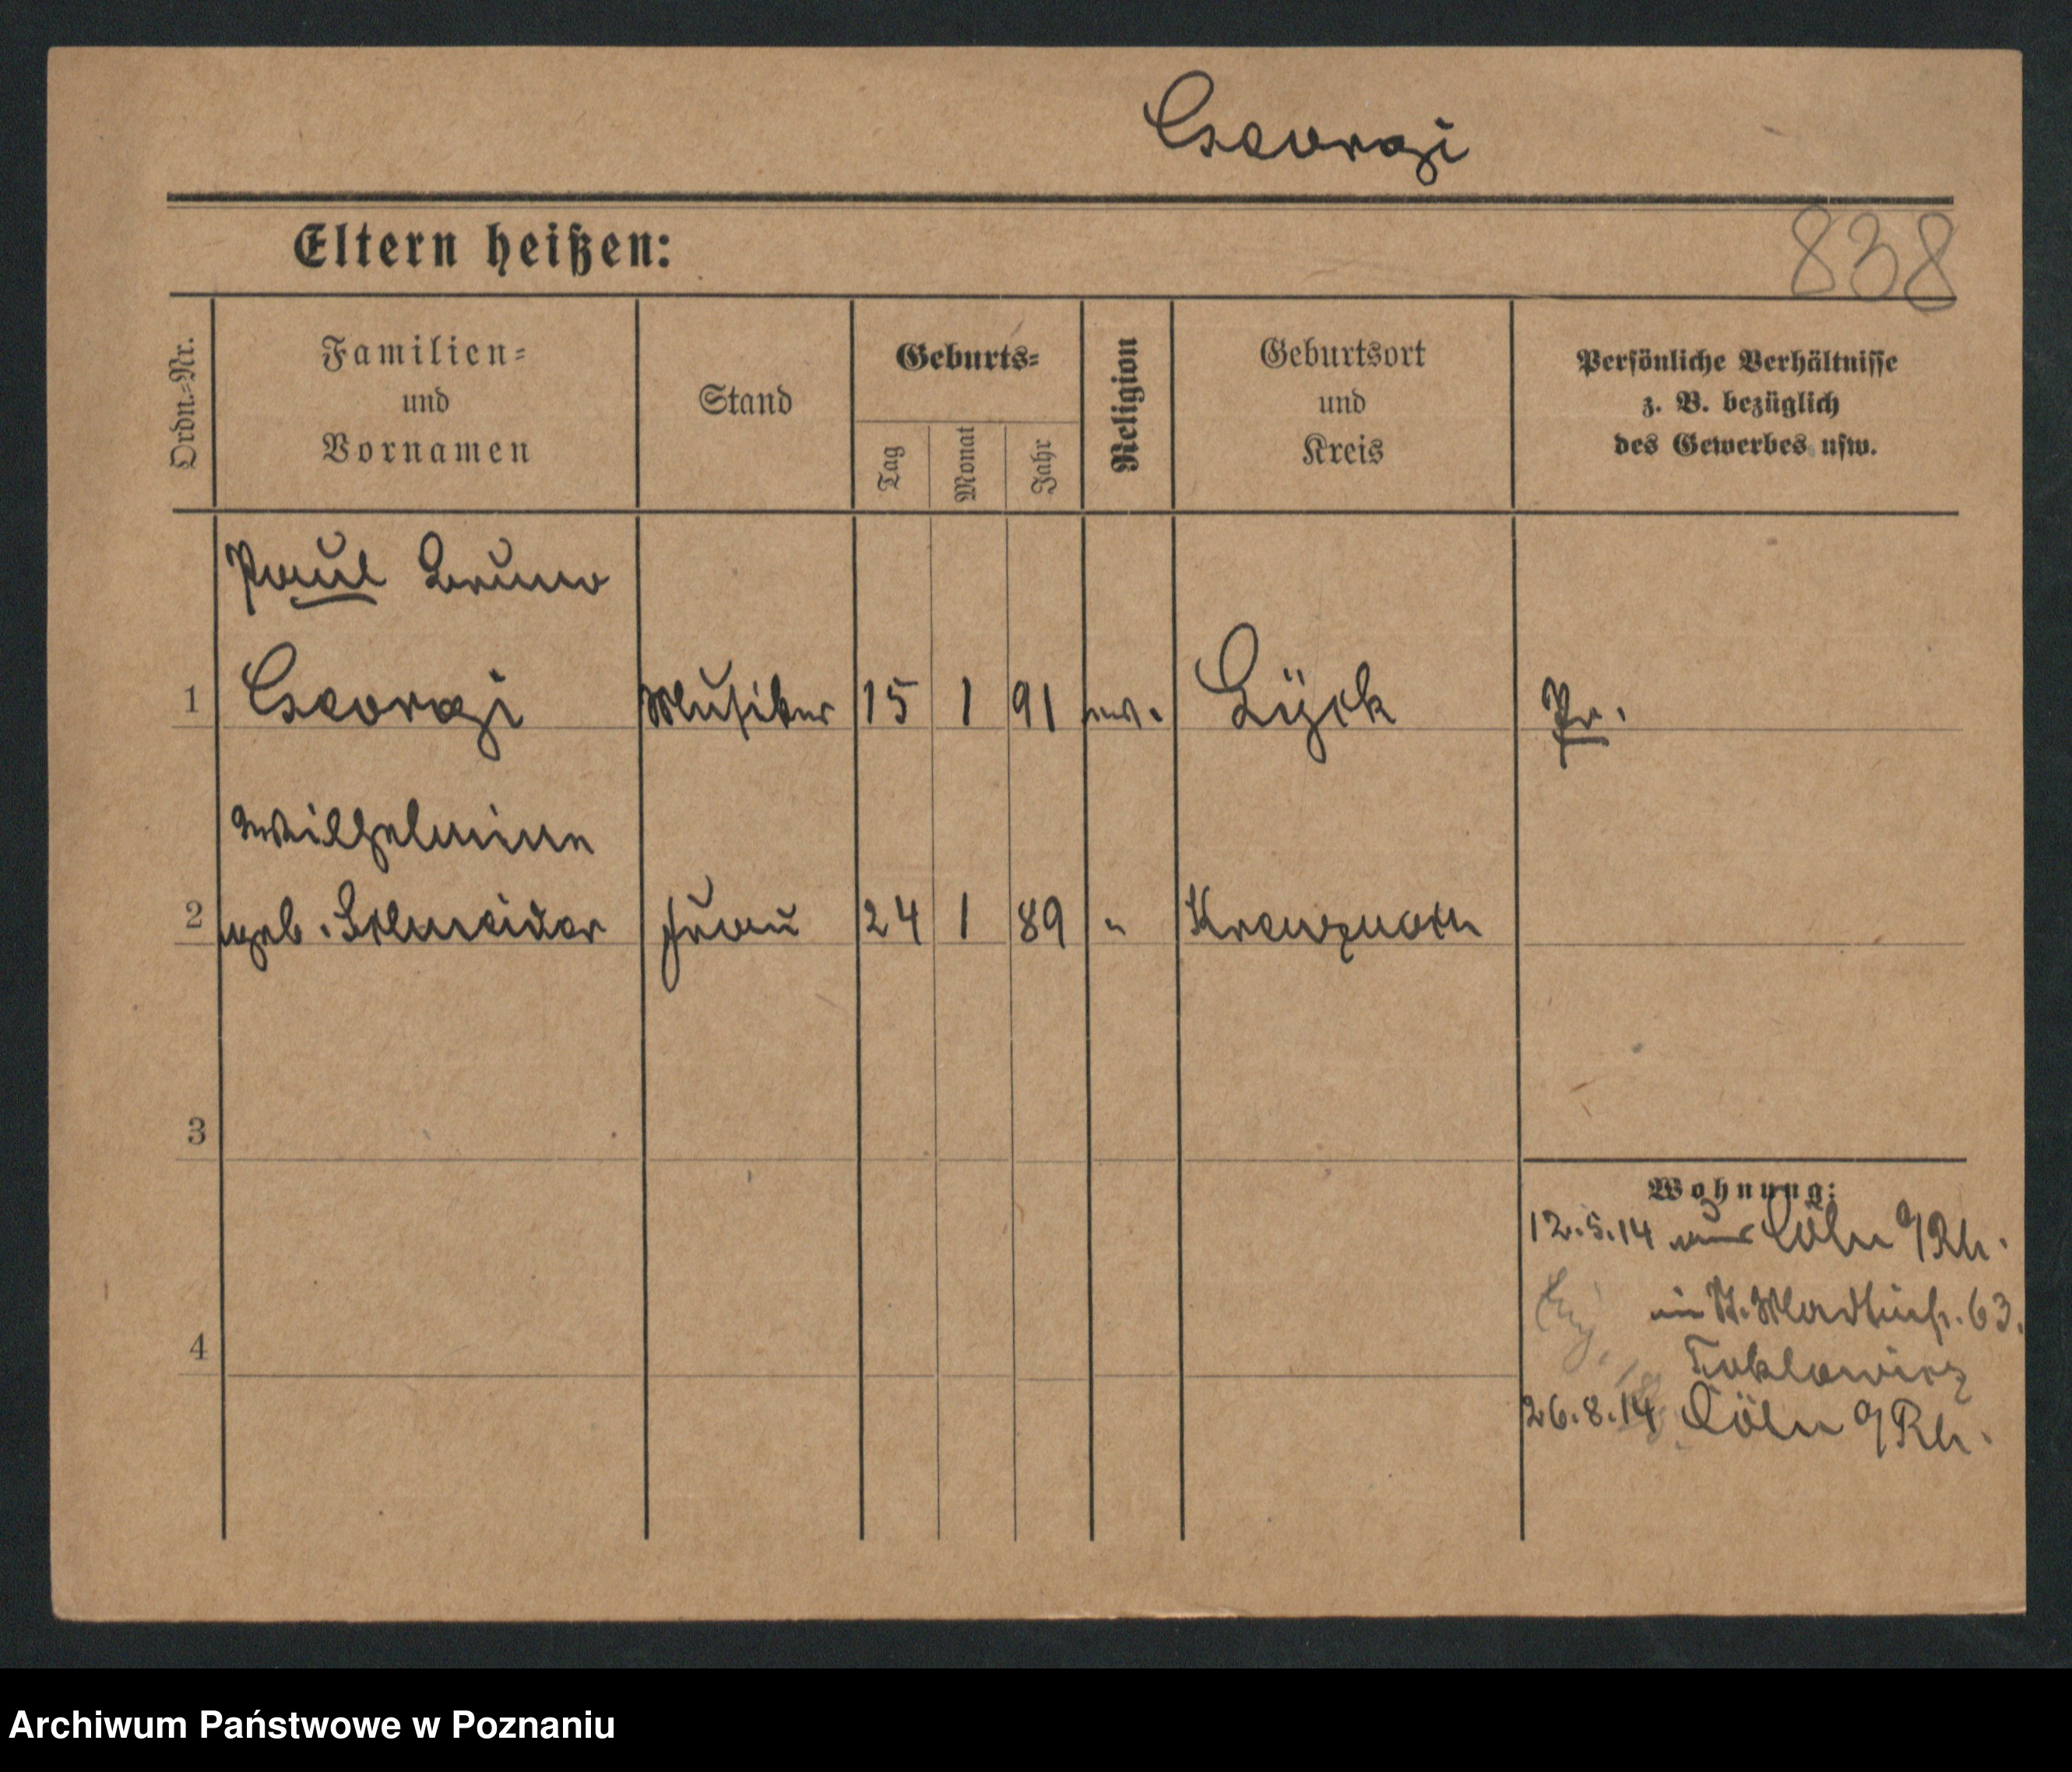 Georgi
Eltern heißen:
838
Ordn.-Nr.
Familien-
und
Vornamen
Stand
Geburts-
Tag
Monat
Jahr
Religion
Geburtsort
und
Kreis
Persönliche Verhältnisse
z. B. bezüglich
des Gewerbes usw.
Paul Bruno
1 Georgi Musiker 15 1 91 ev. Lÿck Pr.
Wilhelmine
2 geb. Schneider Frau 24 1 89 " Kreuznach
3
Wohnung:
12.5.14 aus Cöln a/Rh.
in St. Martinstr. 63.
4
26.8.14 Cöln a/Rh.
Archiwum Państwowe w Poznaniu